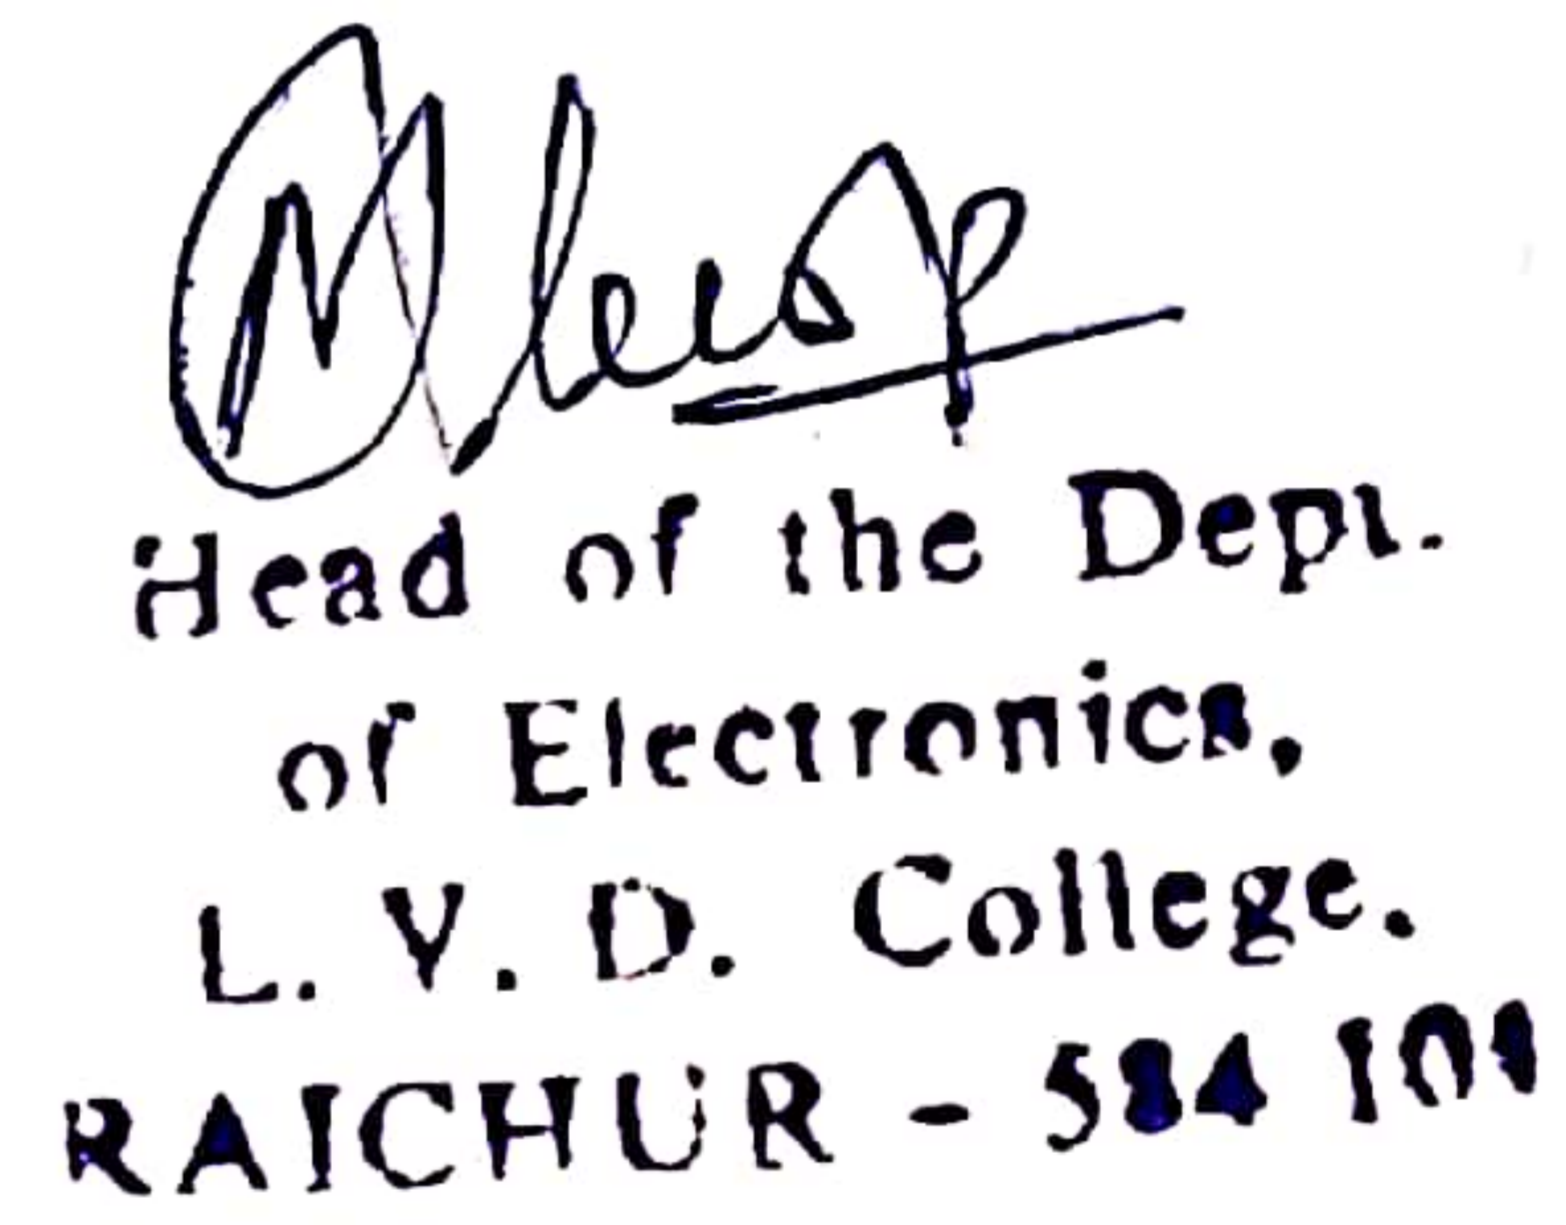 Head of the Dept.
of Electronics,
L. V. D. College.
RAICHUR - 584 101